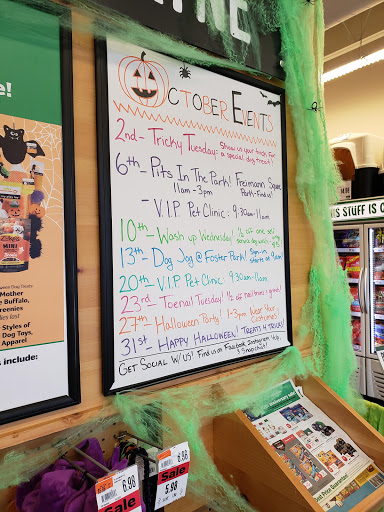 e!
NE
October Events
2nd - Tricky Tuesday: Show us your trick for
a special dog treat!
6th - Pits In The Park! Freimann Square
11am - 3pm Park - Find us!
- V.I.P Pet Clinic: 9:30am-11am
10th - Wash up Wednesday! ½ off one self
13th - Dog Jog @ Foster Park! Sign-in
starts @ 9am!
20th - V.I.P Pet Clinic: 9:30am-11am
23rd - Toenail Tuesday! ½ off nail trims & grind!
27th - Halloween Party! 1-3pm Wear Your
Costumes!
31st - Happy Halloween! Treats & Tricks!
Get Social w/ Us! Find us on Facebook, Instagram, Yelp
& Snapchat!
IS STUFF IS C
MINI
Mother
Buffalo,
Greenies
last
Styles of
Dog Toys,
Apparel
s include:
Sale
6.98
Sale
5.98